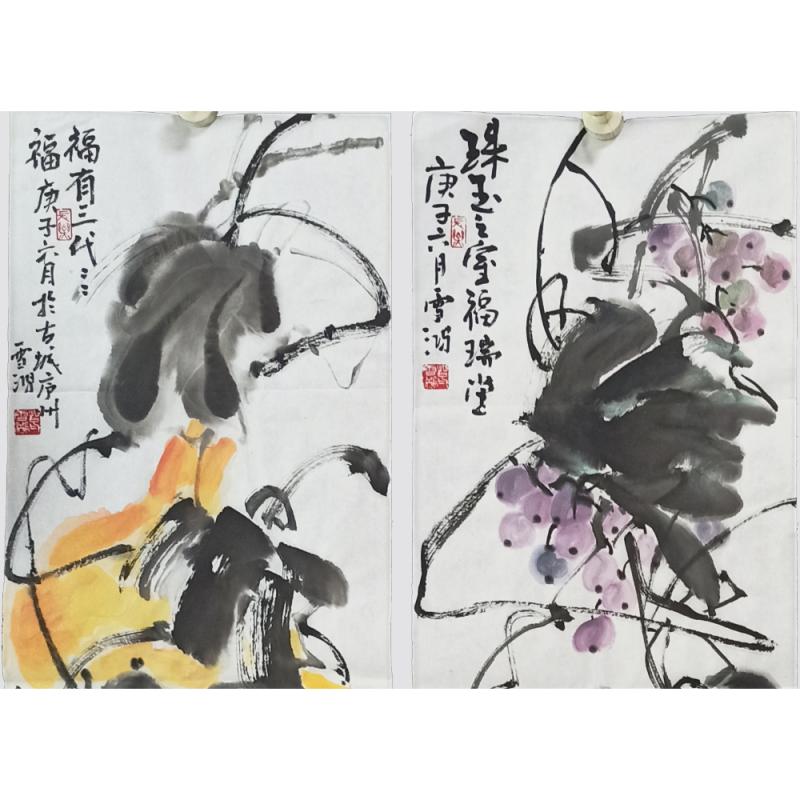 福有三代
福庚子六月於古城庐州
雪鸿
珠玉之室福瑞
庚子六月雪鸿